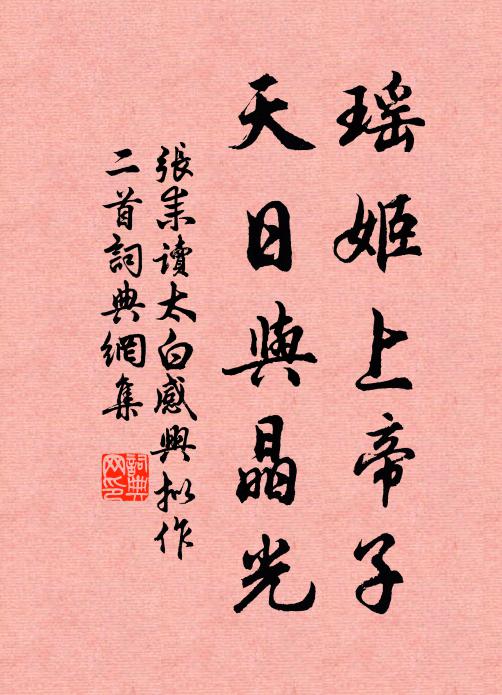 瑶姬上帝子
天日與晶光
張耒讀太白感興拟作
二首詞典網集
詞典網印